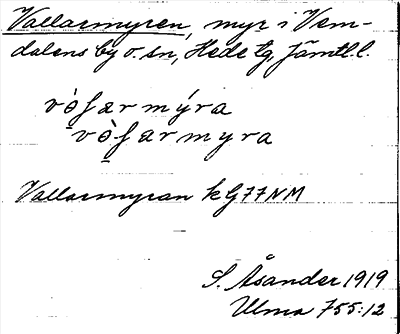 Vallarmyren, myr i Vem-
dalens by o. sn, Hede tg, Jämtl. l.
vòḷarmýra
vòḷarmyra
Vallarmyran kG77NM
S. Åsander 1919
Ulma 755:12